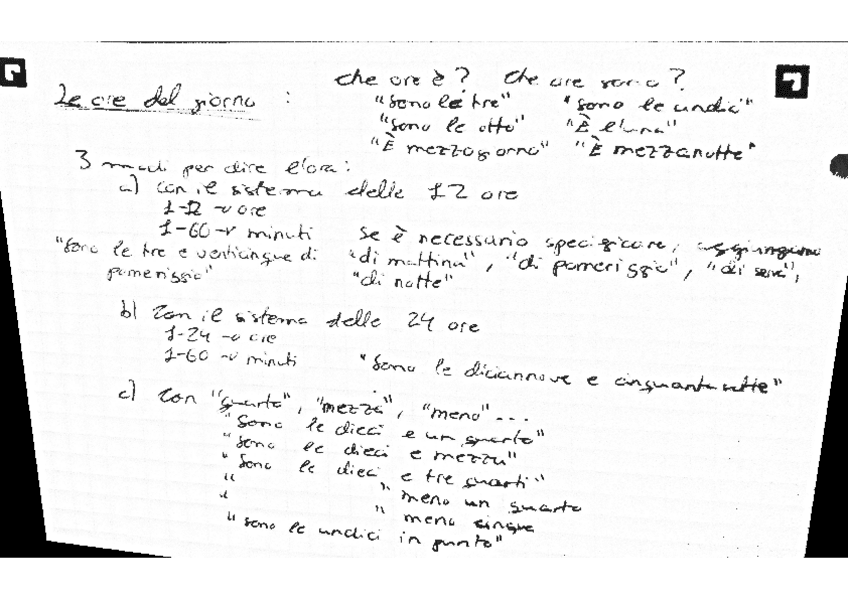 Che ore è? Che ore sono?
Le ore del giorno :
"sono le tre" "sono le undici"
"sono le otto" "È l'una"
"È mezzogiorno" "È mezzanotte"
3 modi per dire l'ora:
a) con il sistema delle 12 ore
1-12 → ore
1-60 → minuti
"sono le tre e venticinque di
pomeriggio"
se è necessario specificare, aggiungiamo
"di mattina", "di pomeriggio", "di sera",
"di notte"
b) Con il sistema delle 24 ore
1-24 → ore
1-60 → minuti
"Sono le diciannove e cinquantasette"
c) Con "quarto", "mezza", "meno"...
"Sono le dieci e un quarto"
"Sono le dieci e mezza"
"Sono le dieci e tre quarti"
" " meno un quarto
" " meno cinque
"sono le undici in punto"